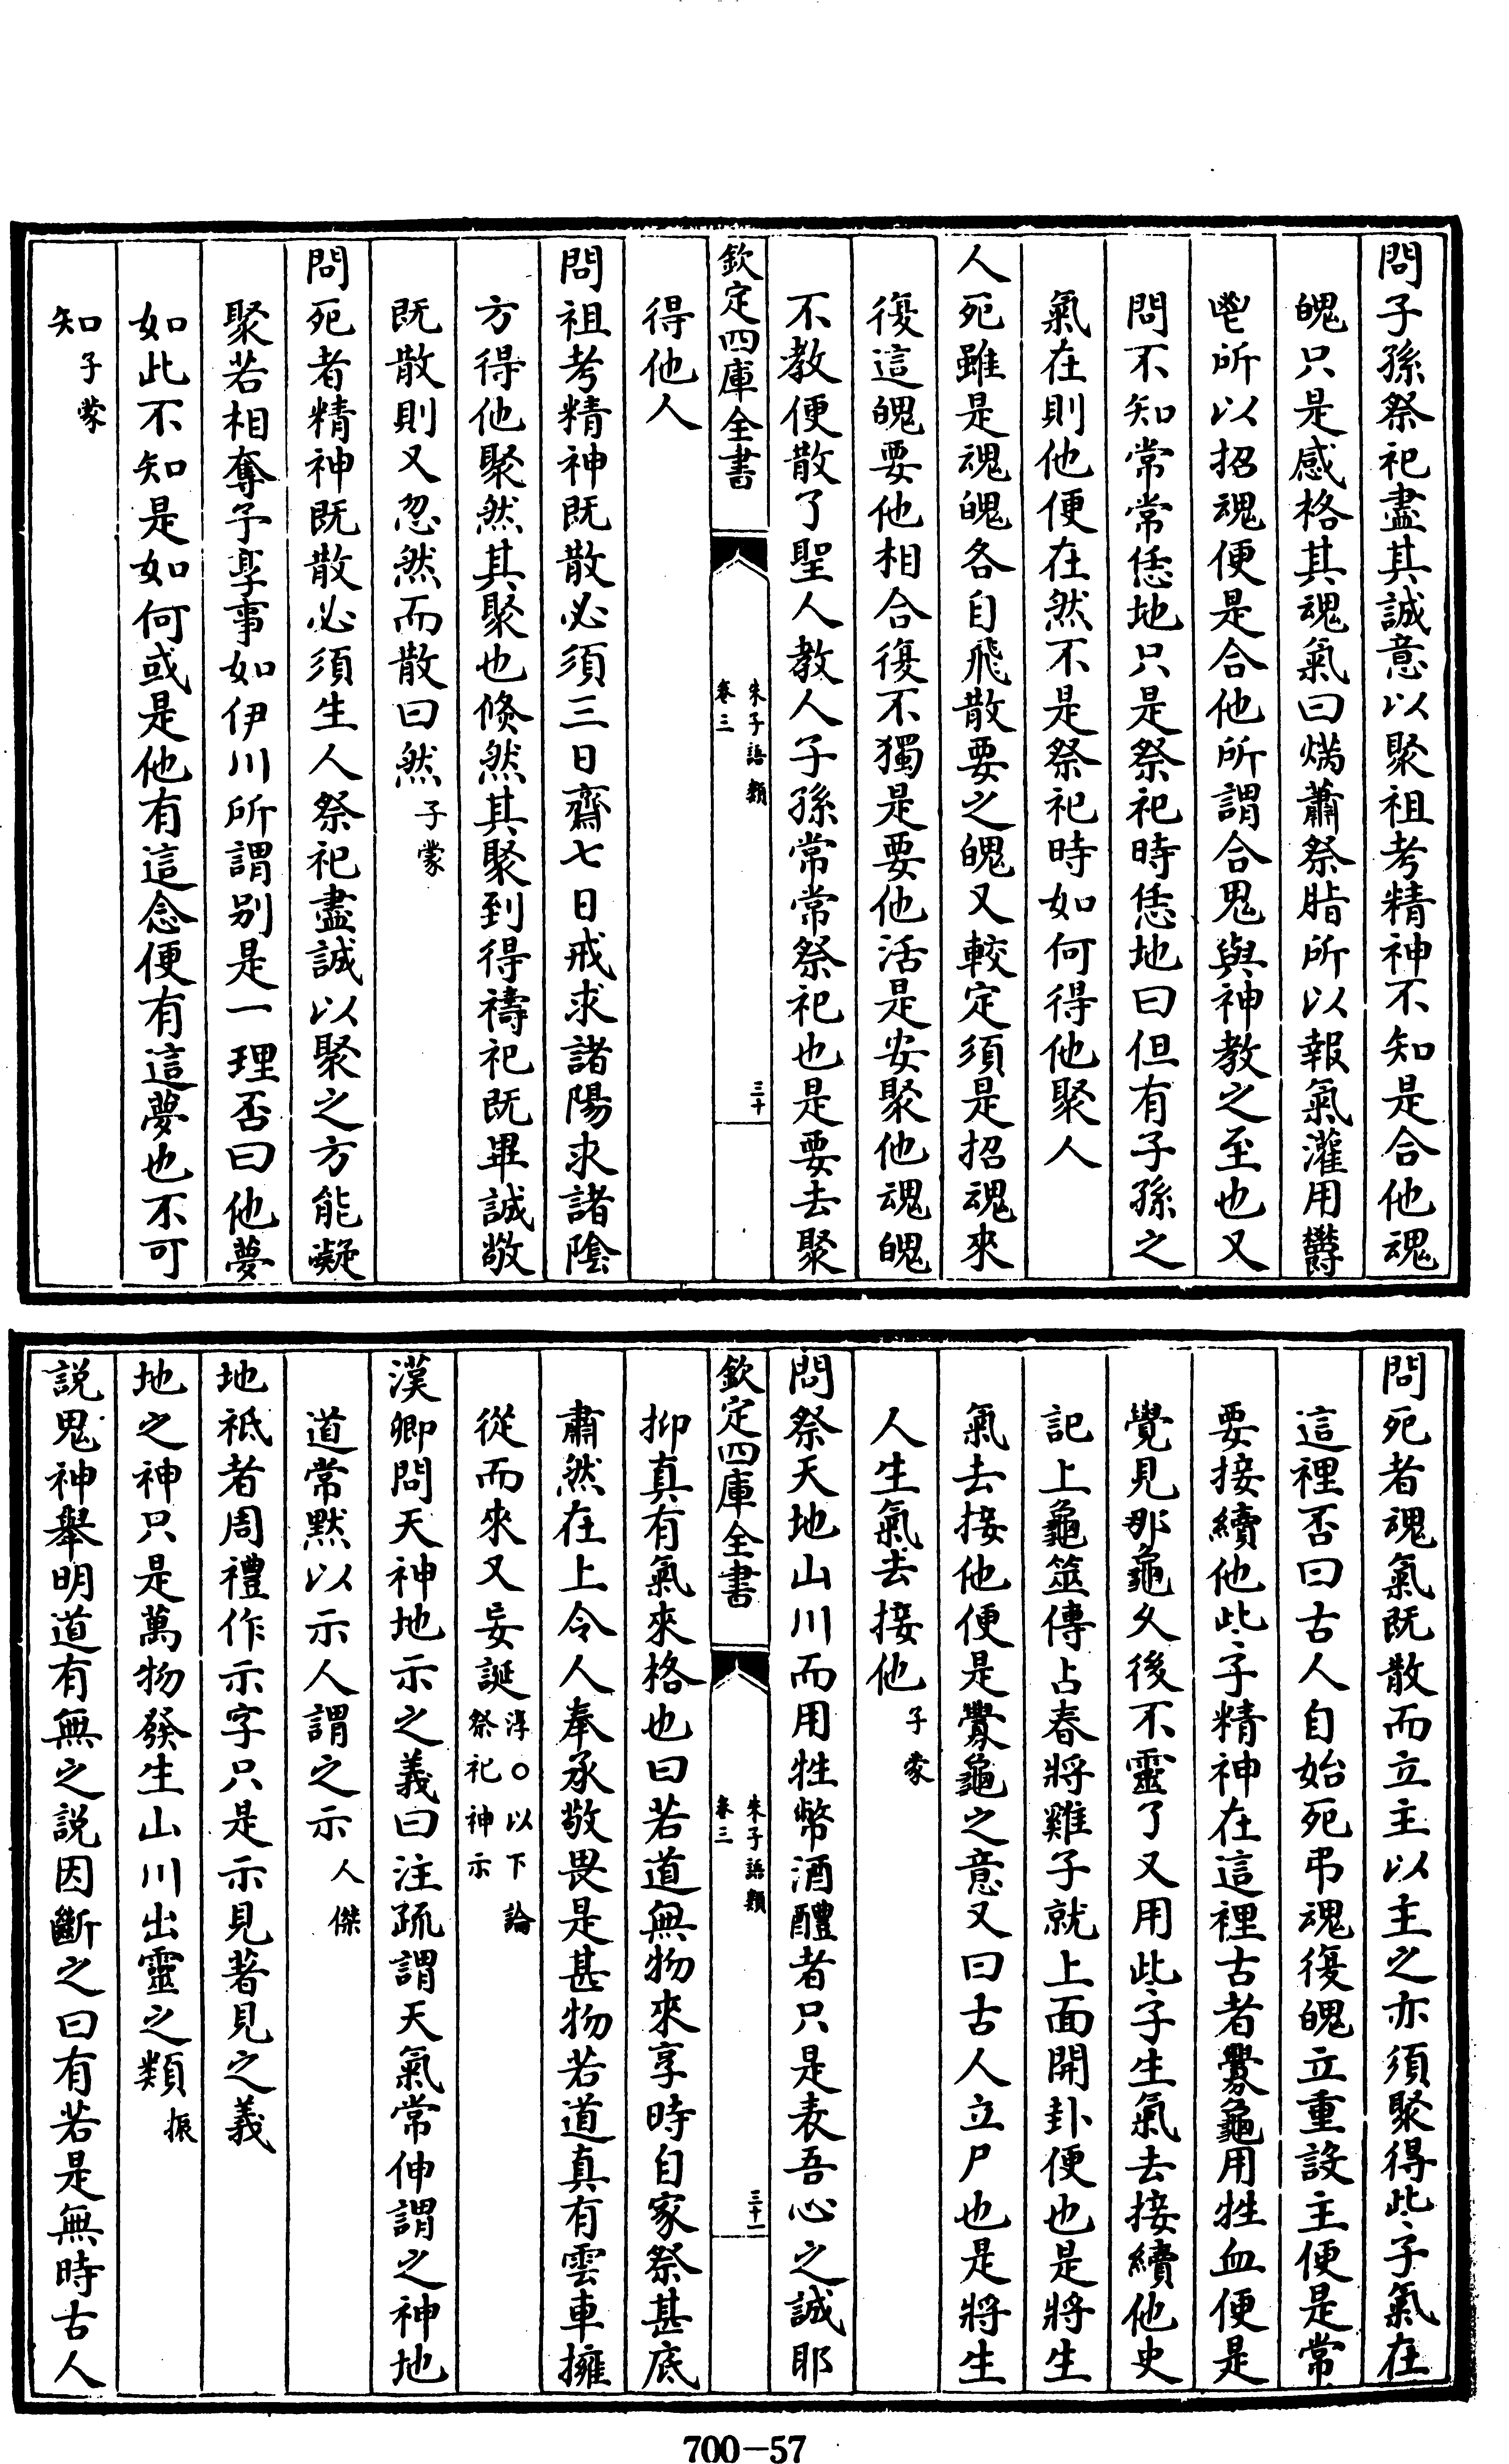 問子孫祭祀盡其誠意以聚祖考精神不知是合他魂
魄只是感格其魂氣曰焫蕭祭脂所以報氣灌用鬱
鬯所以招魂便是合他所謂合鬼與神教之至也又
問不知常常恁地只是祭祀時恁地曰但有子孫之
氣在則他便在然不是祭祀時如何得他聚人
人死雖是魂魄各自飛散要之魄又較定須是招魂來
復這魄要他相合復不獨是要他活是安聚他魂魄
不教便散了聖人教人子孫常常祭祀也是要去聚
欽定四庫全書
朱子語類
卷三
三十
得他人
問祖考精神既散必須三日齋七日戒求諸陽求諸陰
方得他聚然其聚也倐然其聚到得禱祀既畢誠敬
既散則又忽然而散曰然子蒙
問死者精神既散必須生人祭祀盡誠以聚之方能凝
聚若相奪予享事如伊川所謂别是一理否曰他夢
如此不知是如何或是他有這念便有這夢也不可
知子蒙
問死者魂氣既散而立主以主之亦須聚得些子氣在
這裡否曰古人自始死弔魂復魄立重設主便是常
要接續他些子精神在這裡古者釁龜用牲血便是
覺見那龜久後不靈了又用些子生氣去接續他史
記上龜筮傳占春將雞子就上面開卦便也是將生
氣去接他便是釁龜之意又曰古人立尸也是將生
人生氣去接他子蒙
問祭天地山川而用牲幣酒醴者只是表吾心之誠耶
欽定四庫全書
朱子語類
卷三
三十一
抑真有氣來格也曰若道無物來享時自家祭甚底
肅然在上令人奉承敬畏是甚物若道真有雲車擁
從而來又妄誕淳○以下論祭祀神示
漢卿問天神地示之義曰注疏謂天氣常伸謂之神地
道常黙以示人謂之示人傑
地祇者周禮作示字只是示見著見之義
地之神只是萬物發生山川出靈之類振
説鬼神舉明道有無之説因斷之曰有若是無時古人
700-57